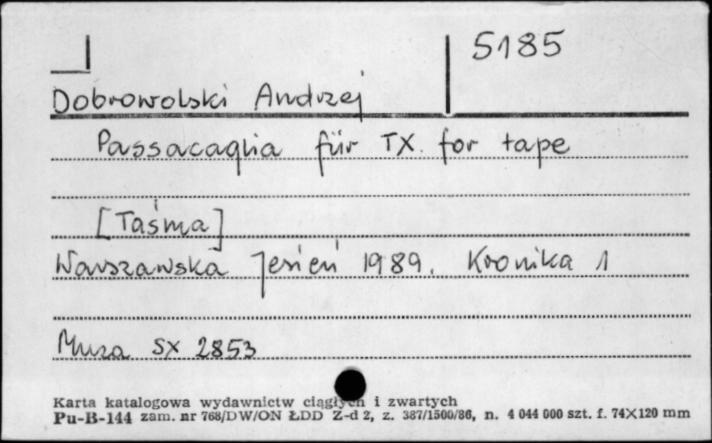 5185
Dobrowolski Andrzej
Passacaglia für TX. for tape
[Taśma]
Warszawska Jesień 1989. Kronika 1
Muza SX 2853
Karta katalogowa wydawnictw ciągłych i zwartych
Pu-B-144 zam. nr 768/DW/ON ŁDD Z-d 2, z. 387/1500/86, n. 4 044 000 szt. f. 74X120 mm